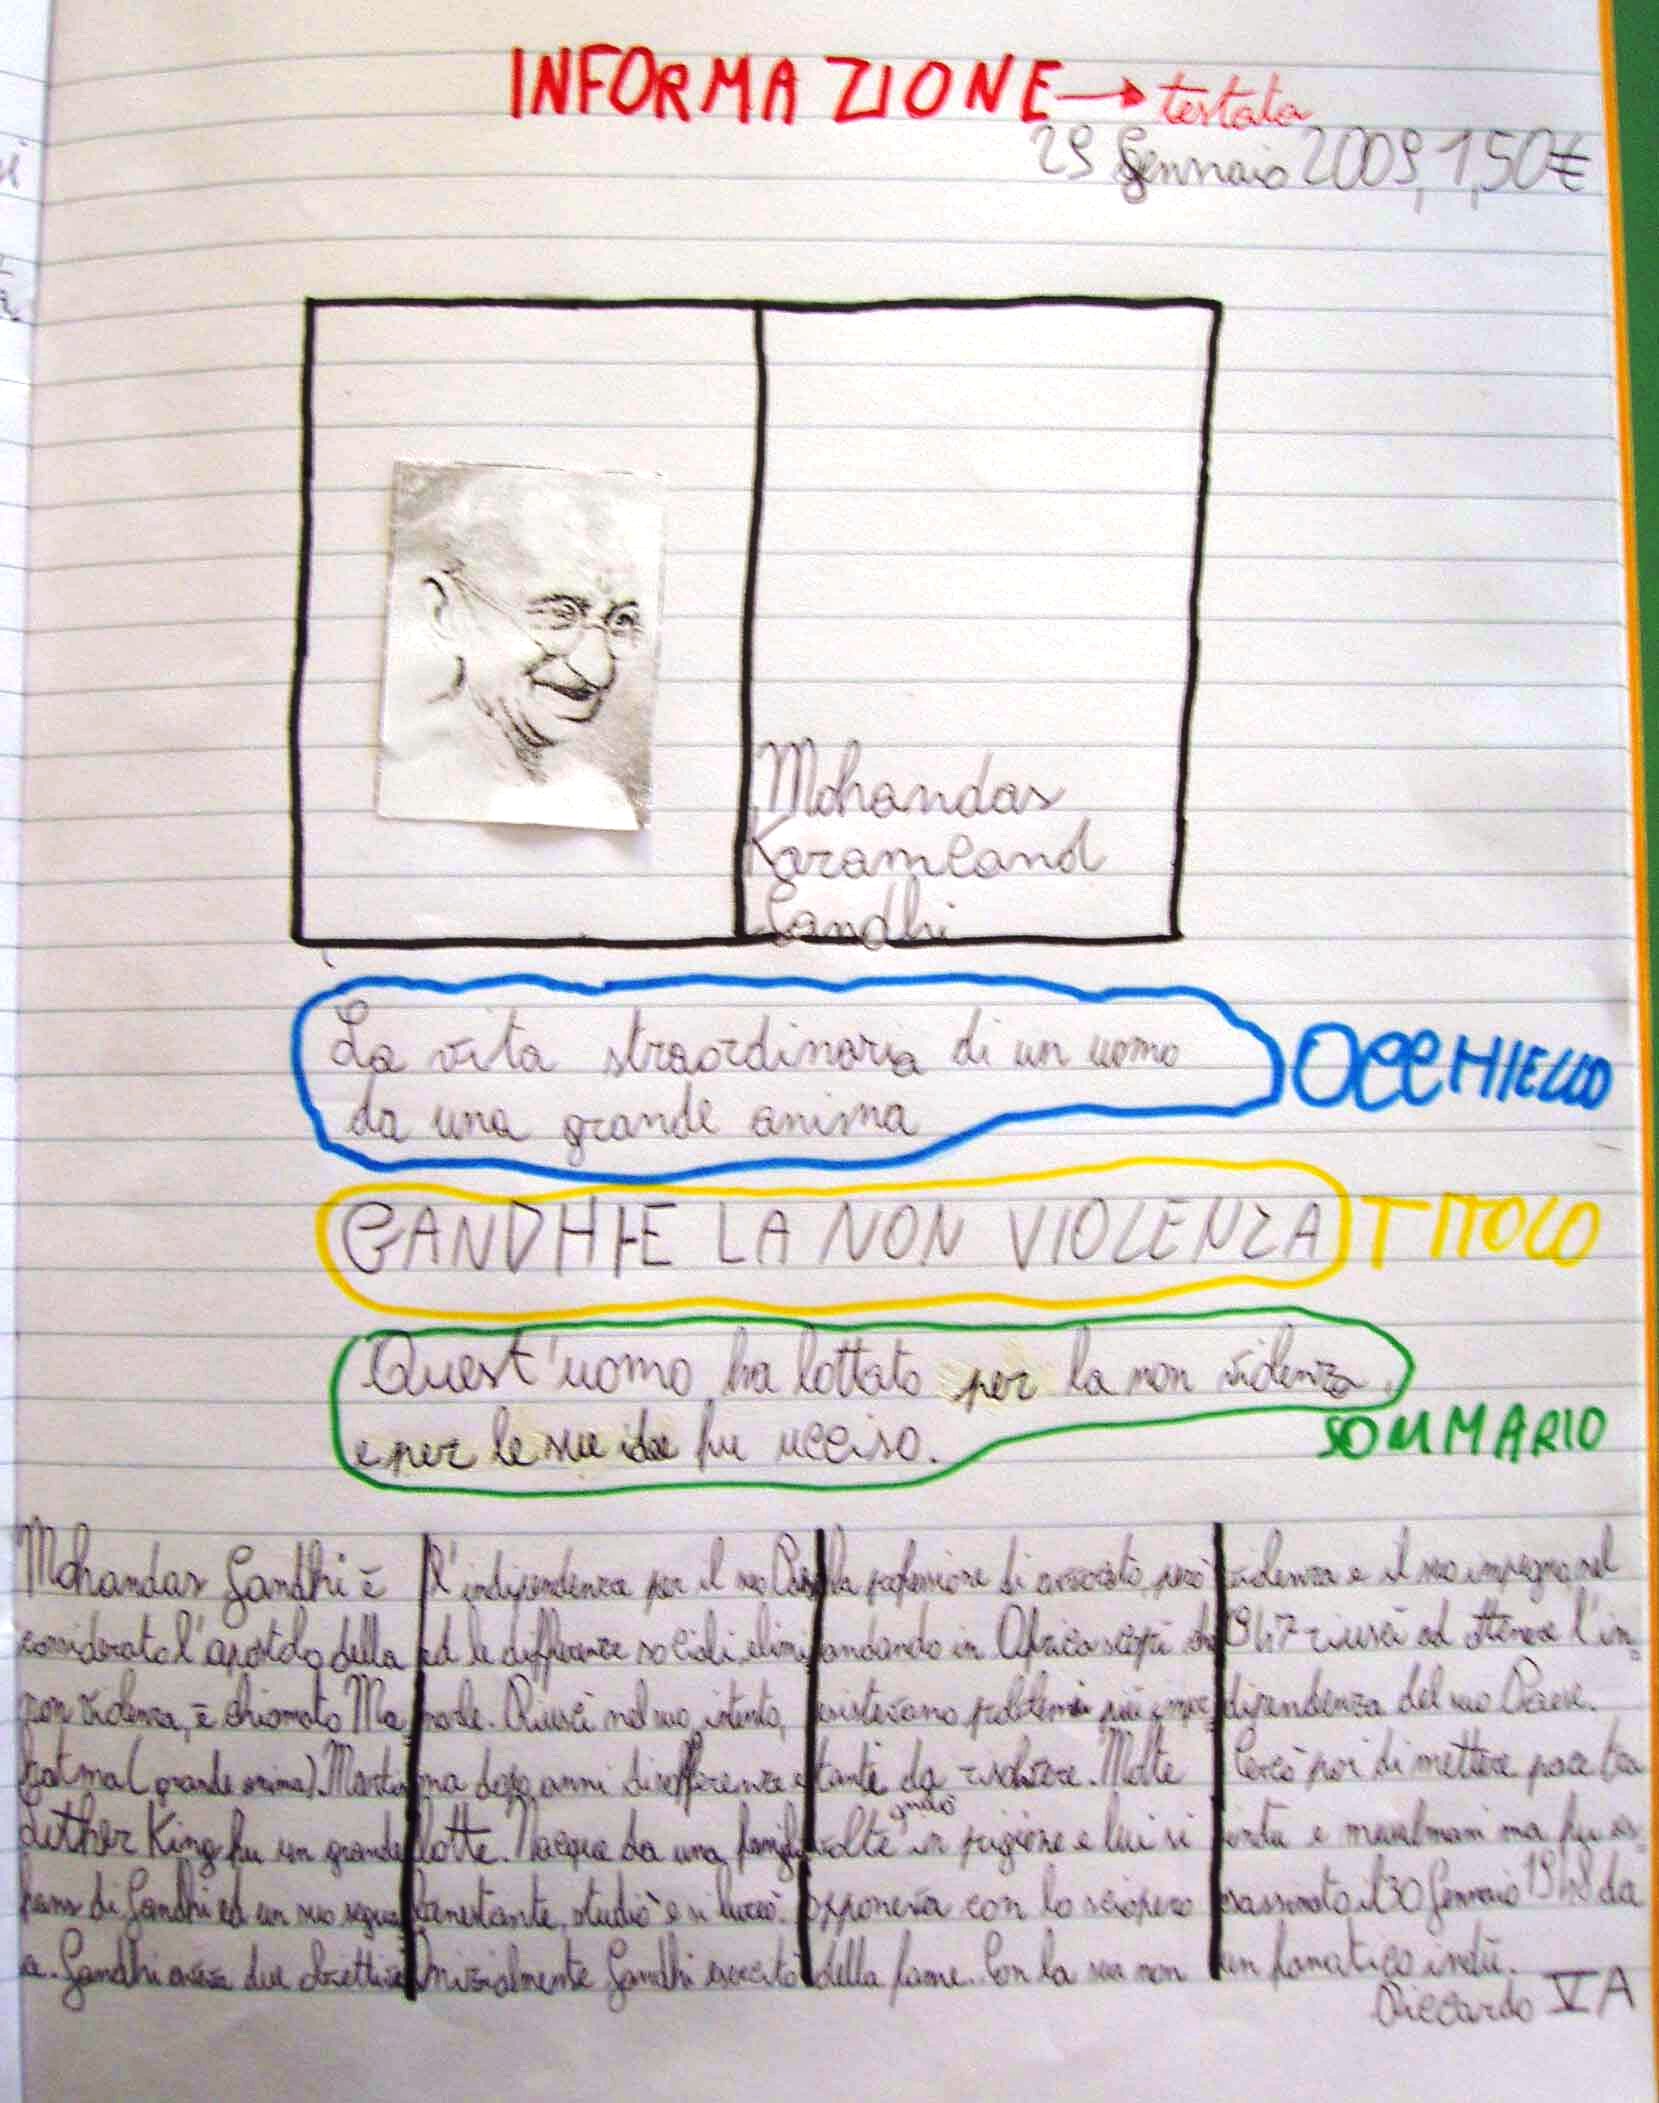 INFORMAZIONE → testata
29 Gennaio 2009, 1,50€
Mohandas
Karamcand
Gandhi
La vita straordinaria di un uomo
da una grande anima
OCCHIELLO
GANDHI E LA NON VIOLENZA
TITOLO
Quest'uomo ha lottato per la non violenza
e per le sue idee fu ucciso.
SOMMARIO
Mohandas Gandhi è
considerato l'apostolo della
non violenza, è chiamato Ma
hatma (grande anima). Martin
Luther King fu un grande
fans di Gandhi ed un suo segua
e. Gandhi aveva due obiettivi
l'indipendenza per il suo Paese
ed le differenze sociali, elimi
narle. Riuscì nel suo intento,
ma dopo anni di sofferenza e
lotte. Nacque da una famiglia
benestante, studiò e si laureò.
Inizialmente Gandhi esercitò
la professione di avvocato, però
andando in Africa scoprì che
esistevano problemi più impor
tanti da risolvere. Molte
volte andò in prigione e lui si
opponeva con lo sciopero
della fame. Con la sua non
violenza e il suo impegno, nel
1947 riuscì ad ottenere l'in=
dipendenza del suo Paese.
Cercò poi di mettere pace tra
indù e musulmani ma fu as=
sassinato il 30 Gennaio 1948 da
un fanatico indù.
Riccardo VA